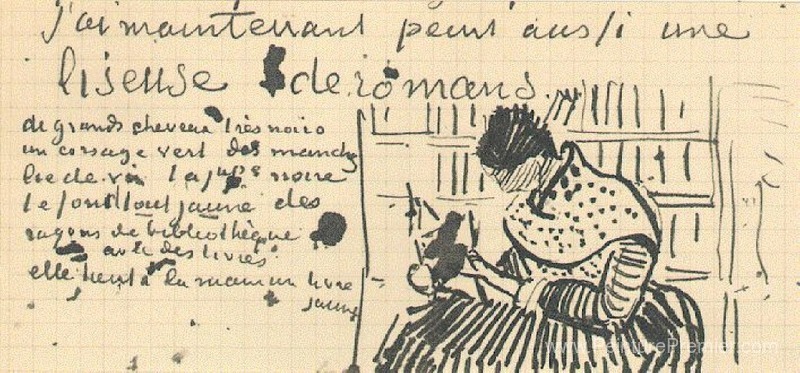 j'ai maintenant peint aussi une
liseuse de romans.
de grands cheveux très noirs
un corsage vert des manches
lie de vin la jupe noire
le fond tout jaune des
rayons de bibliothèque
avec des livres
elle tient à la main un livre
jaune
www.PeinturePremier.com